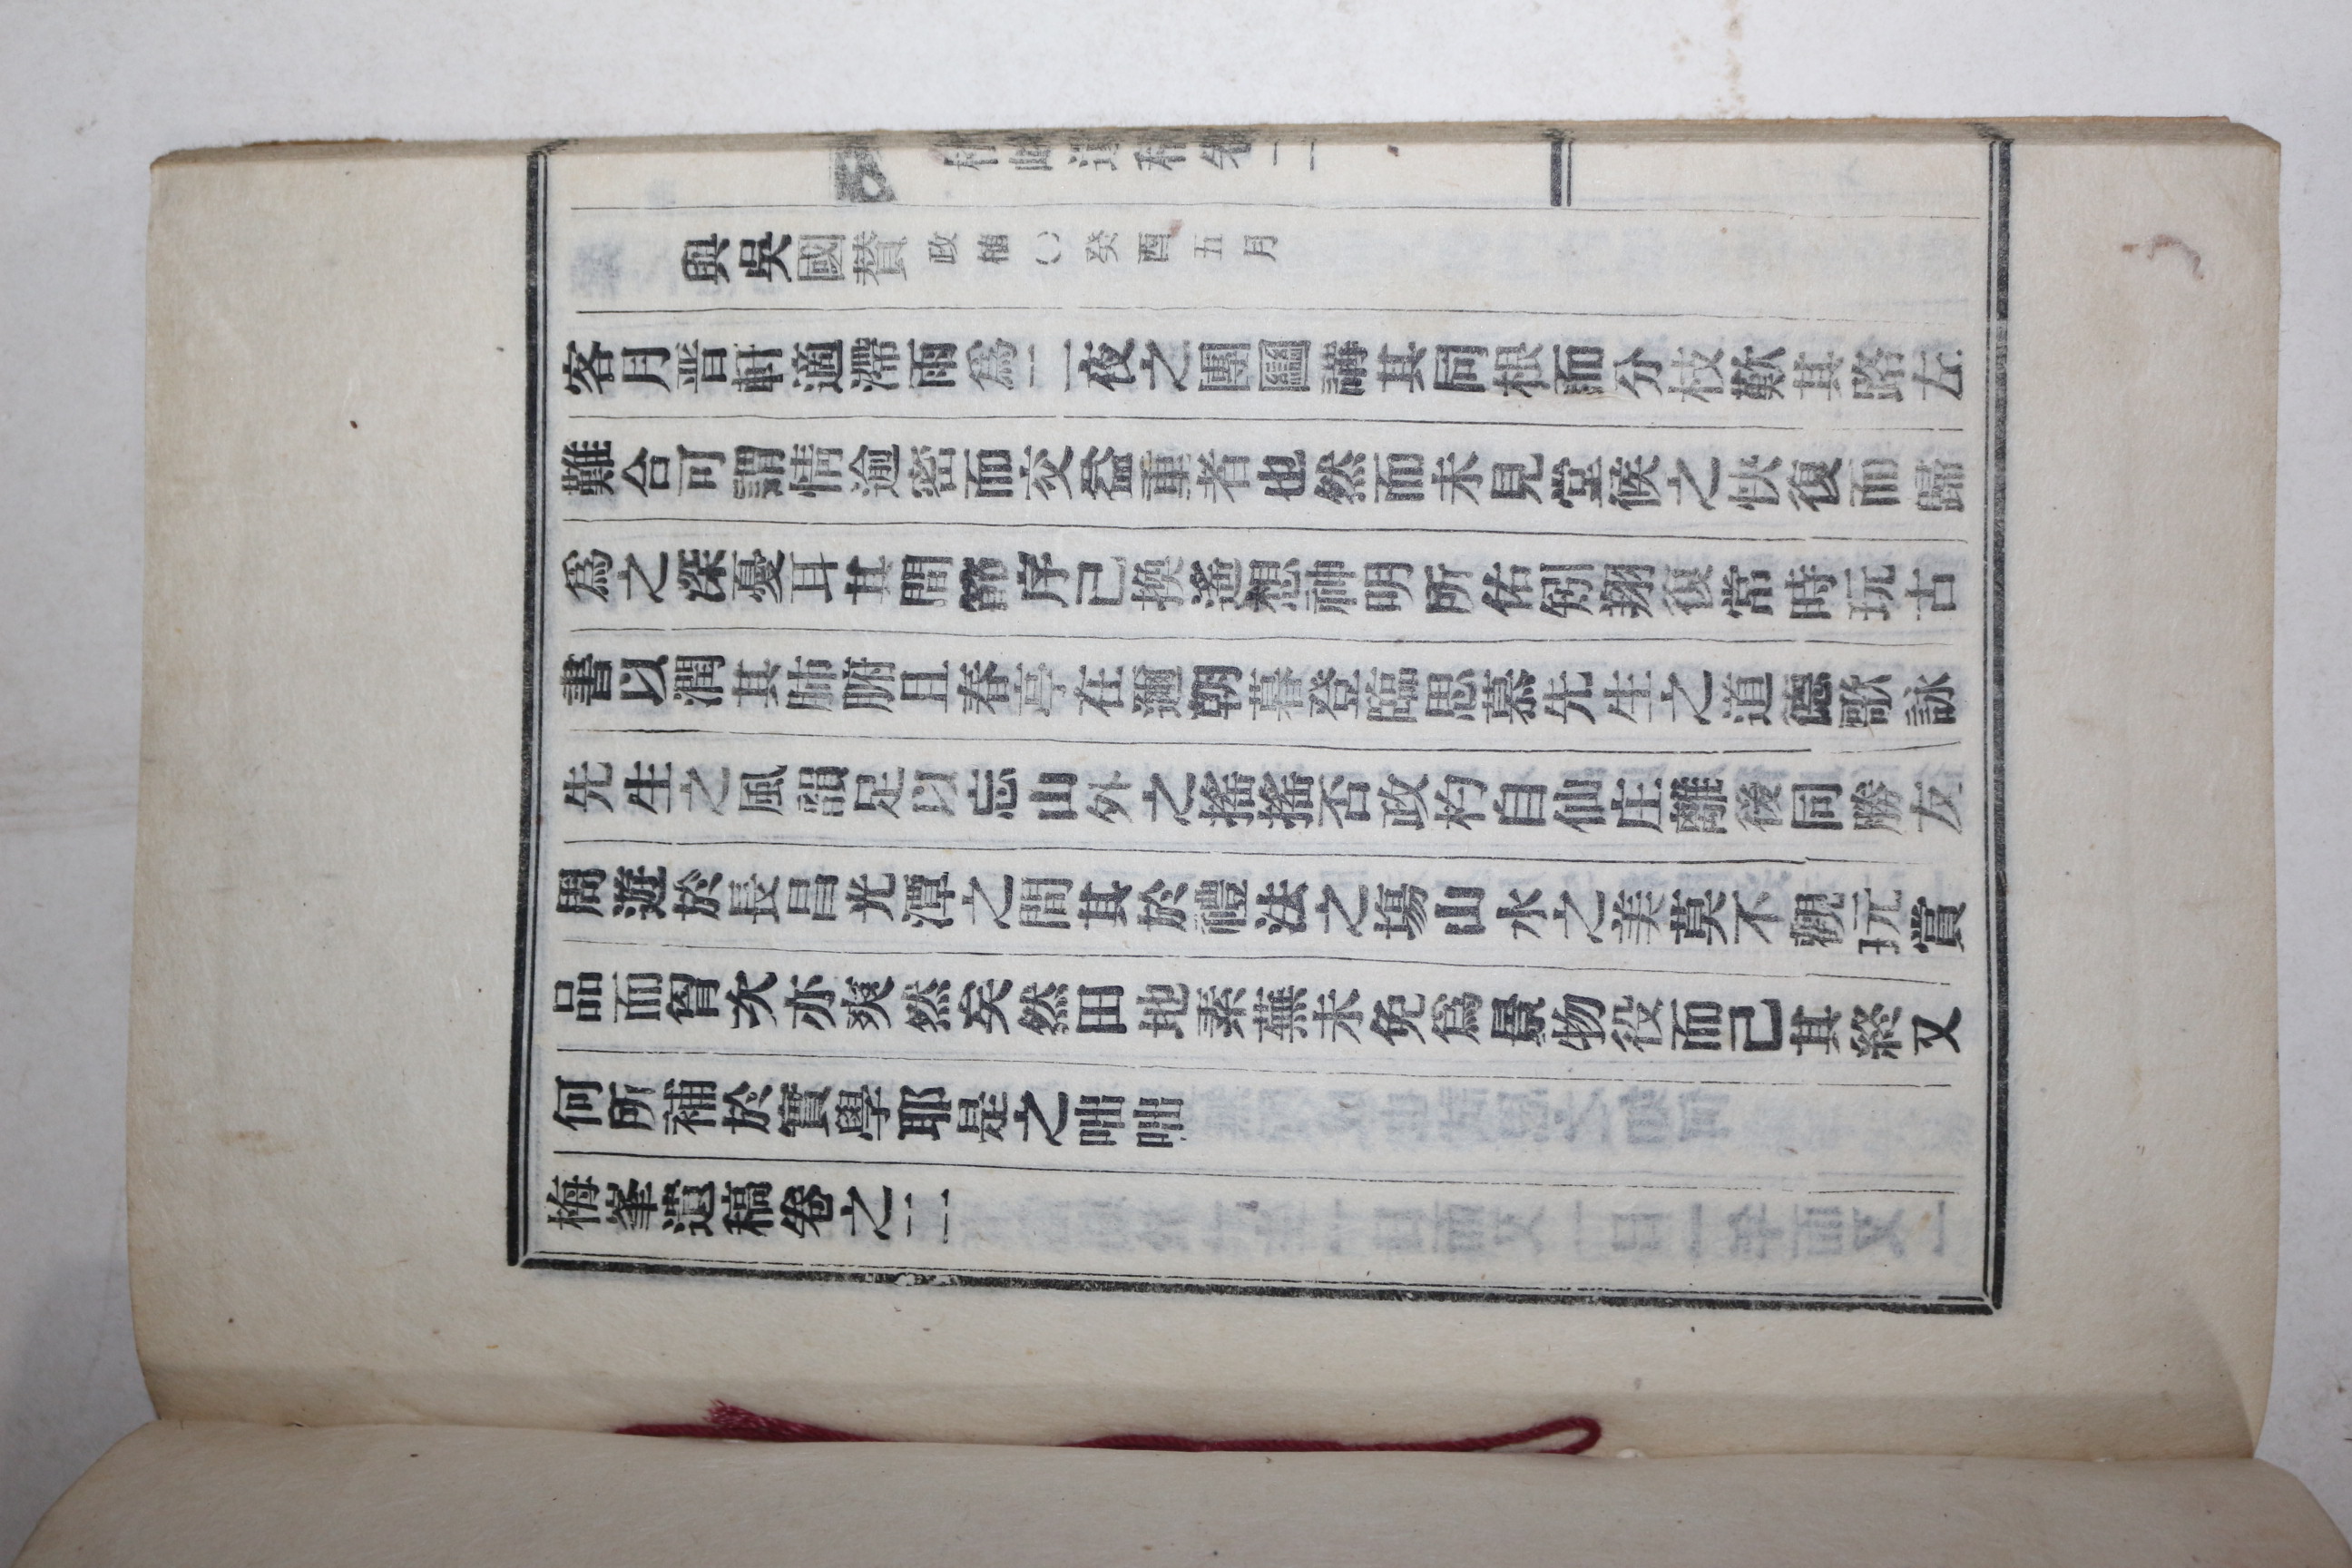 梅峯遺稿卷二
與吳國賛政楠○癸酉五月
客月晋軒適滯雨爲一夜之團圞講其同根而分枝歎其路左
難合可謂情逾密而交益重者也然而未見堂候之快復而歸
爲之深憂耳其間節序已換遙想神明所佑剜翔復常時玩古
書以潤其肺腑且春亭在邇朝暮登臨思慕先生之道德歌詠
先生之風韻足以忘山外之搖搖否政杓自仙庄離後同勝友
周遊於長昌光潭之間其於禮法之場山水之美莫不觀玩賞
品而胷次亦爽然矣然田地素蕪未免爲景物役而已其終又
何所補於實學耶是之咄咄
梅峯遺稿卷之二